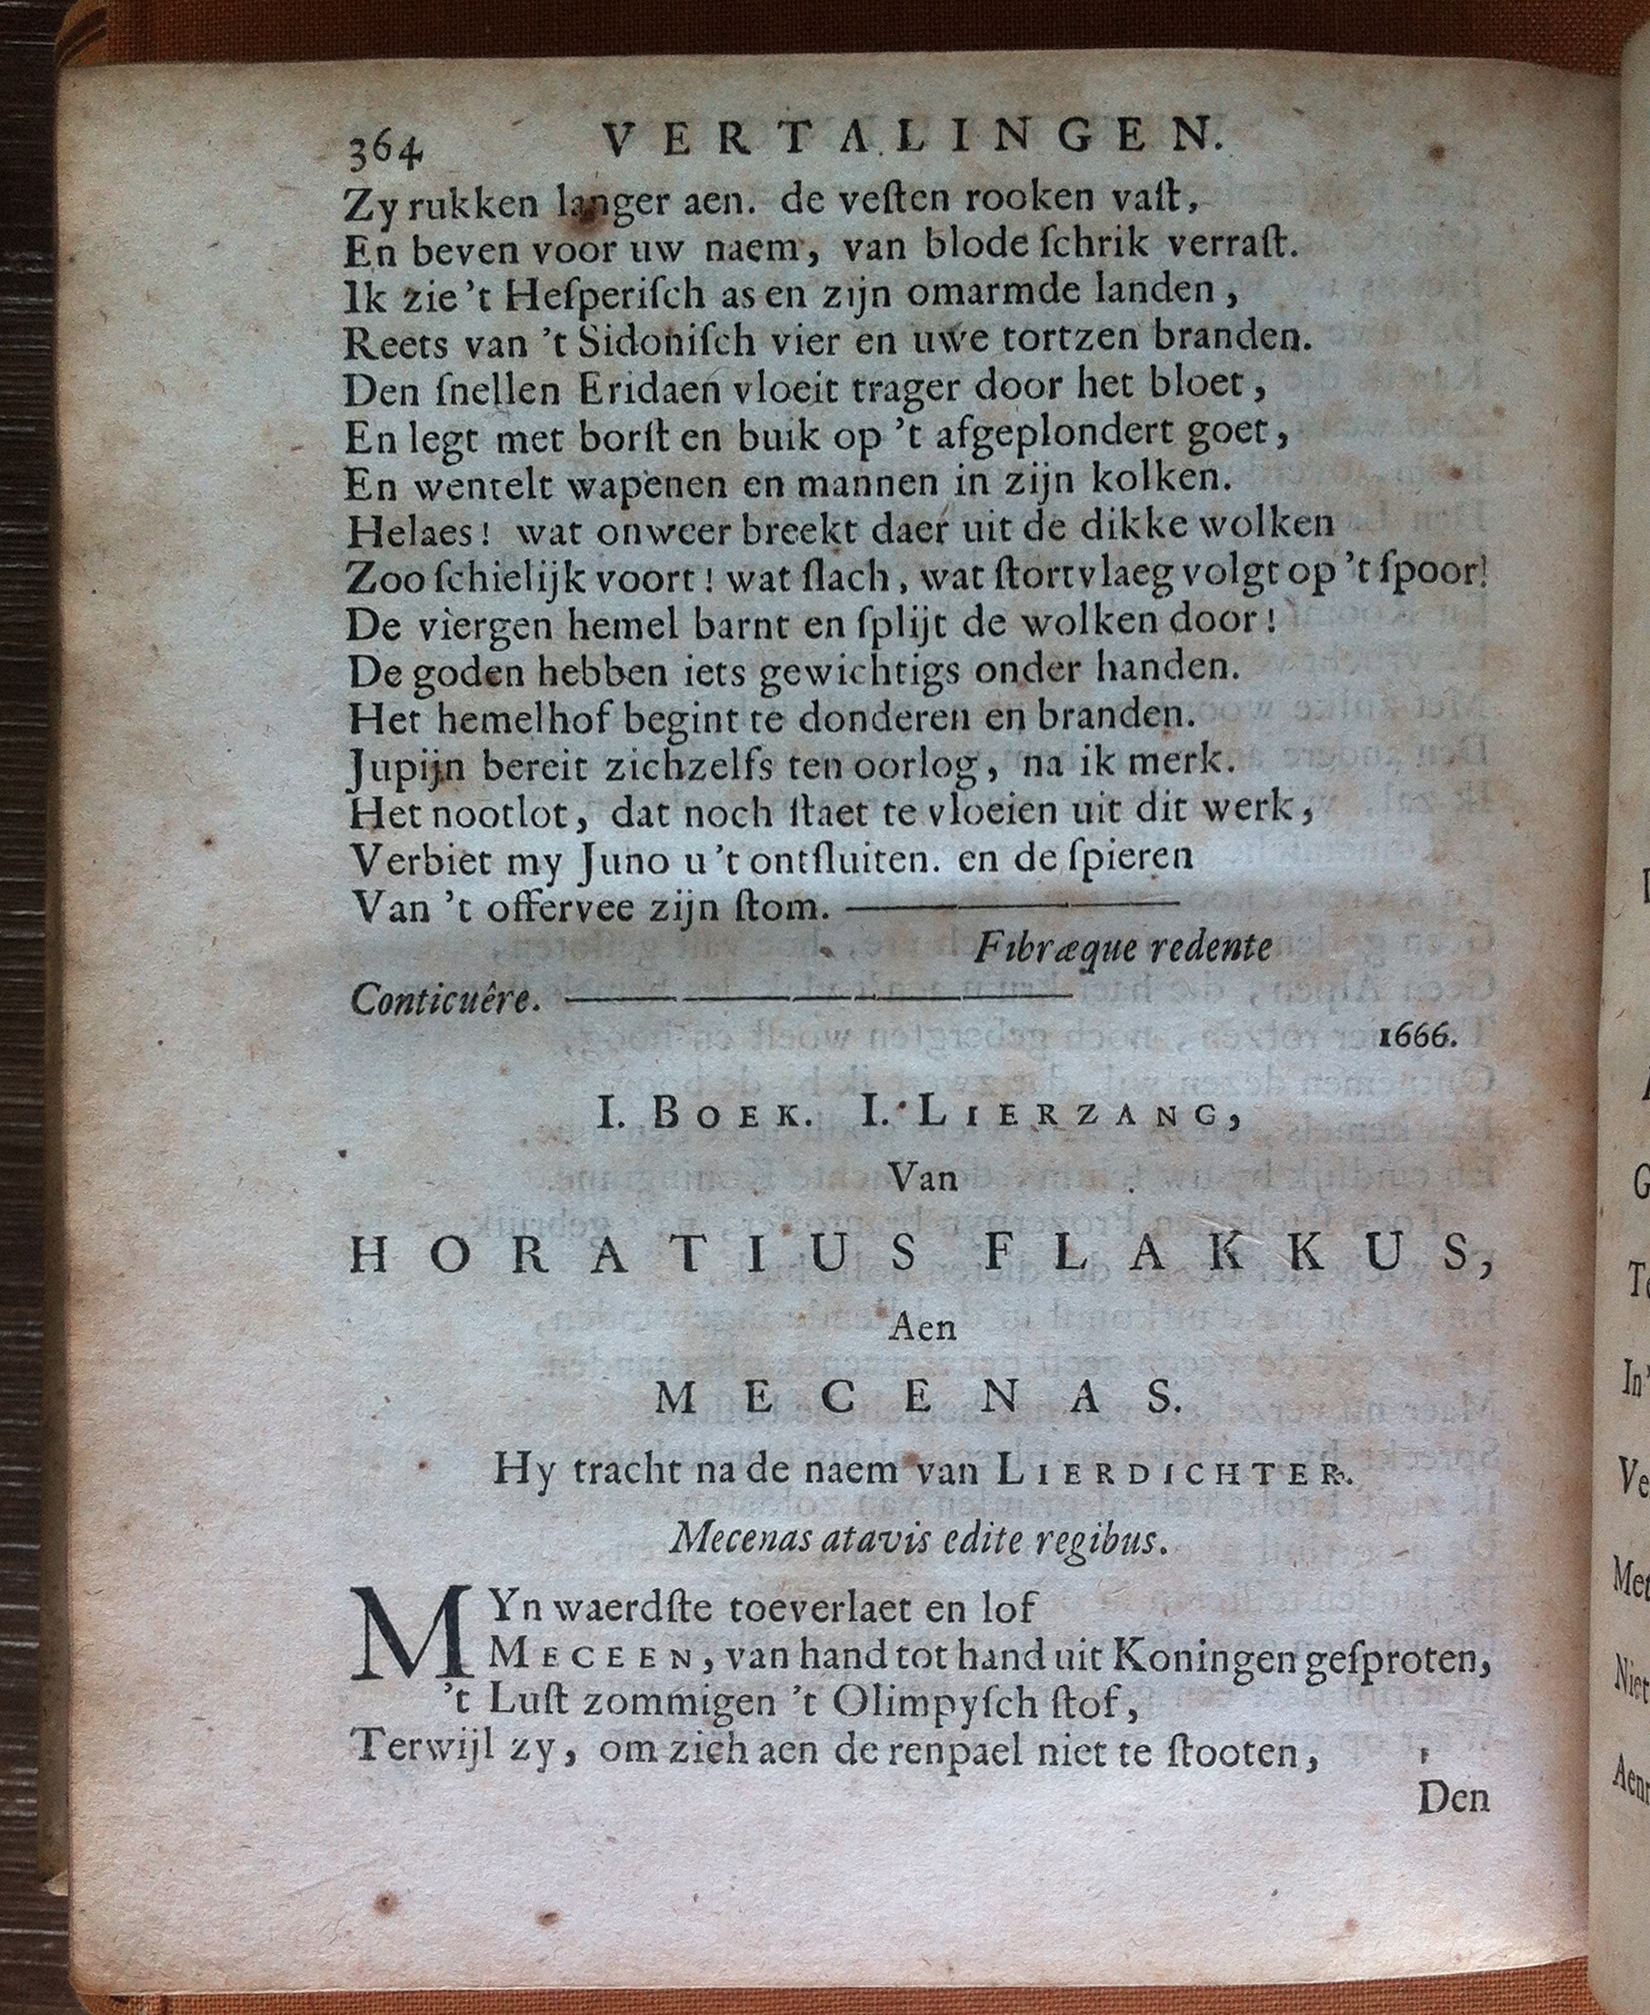 364 VERTALINGEN.
Zy rukken langer aen. de veſten rooken vaſt,
En beven voor uw naem, van blode ſchrik verraſt.
Ik zie 't Heſperiſch as en zijn omarmde landen,
Reets van 't Sidoniſch vier en uwe tortzen branden.
Den ſnellen Eridaen vloeit trager door het bloet,
En legt met borſt en buik op 't afgeplondert goet,
En wentelt wapenen en mannen in zijn kolken.
Helaes! wat onweer breekt daer uit de dikke wolken
Zoo ſchielijk voort! wat ſlach, wat ſtortvlaeg volgt op 't ſpoor!
De viergen hemel barnt en ſplijt de wolken door!
De goden hebben iets gewichtigs onder handen.
Het hemelhof begint te donderen en branden.
Jupijn bereit zichzelfs ten oorlog, na ik merk.
Het nootlot, dat noch ſtaet te vloeien uit dit werk,
Verbiet my Juno u 't ontſluiten. en de ſpieren
Van 't offervee zijn ſtom. ———
Fibræque redente
Conticuêre. ———
1666.
I. BOEK. I. LIERZANG,
Van
HORATIUS FLAKKUS,
Aen
MECENAS.
Hy tracht na de naem van LIERDICHTER.
Mecenas atavis edite regibus.
MYn waerdſte toeverlaet en lof
MECEEN, van hand tot hand uit Koningen geſproten,
't Luſt zommigen 't Olimpyſch ſtof,
Terwijl zy, om zich aen de renpael niet te ſtooten,
Den